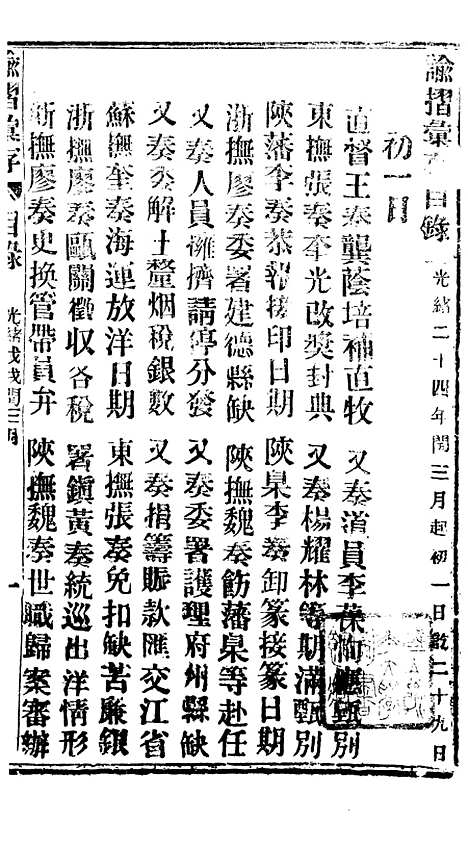 諭摺彙存目錄 光緒二十四年閏三月起初一日訖二十九日
初一日
直督王奏龔蔭培補直牧 又奏道員李葆恂應甄別
東撫張奏李光改獎封典 又奏楊耀林等期滿甄別
陝藩李奏恭報接印日期 陝臬李奏卸篆接篆日期
浙撫廖奏委署建德縣缺 陝撫魏奏飭藩臬等赴任
又奏人員擁擠請停分發 又奏委署護理府州縣缺
又奏分解土釐烟稅銀數 又奏捐籌賑款匯交江省
蘇撫奎奏海運放洋日期 東撫張奏免扣缺苦廉銀
浙撫廖奏甌關徵收各稅 署鎮黃奏統巡出洋情形
浙撫廖奏更換管帶員弁 陝撫魏奏世職歸案審辦
諭摺彙存 目錄 光緒戊戌閏三月 一